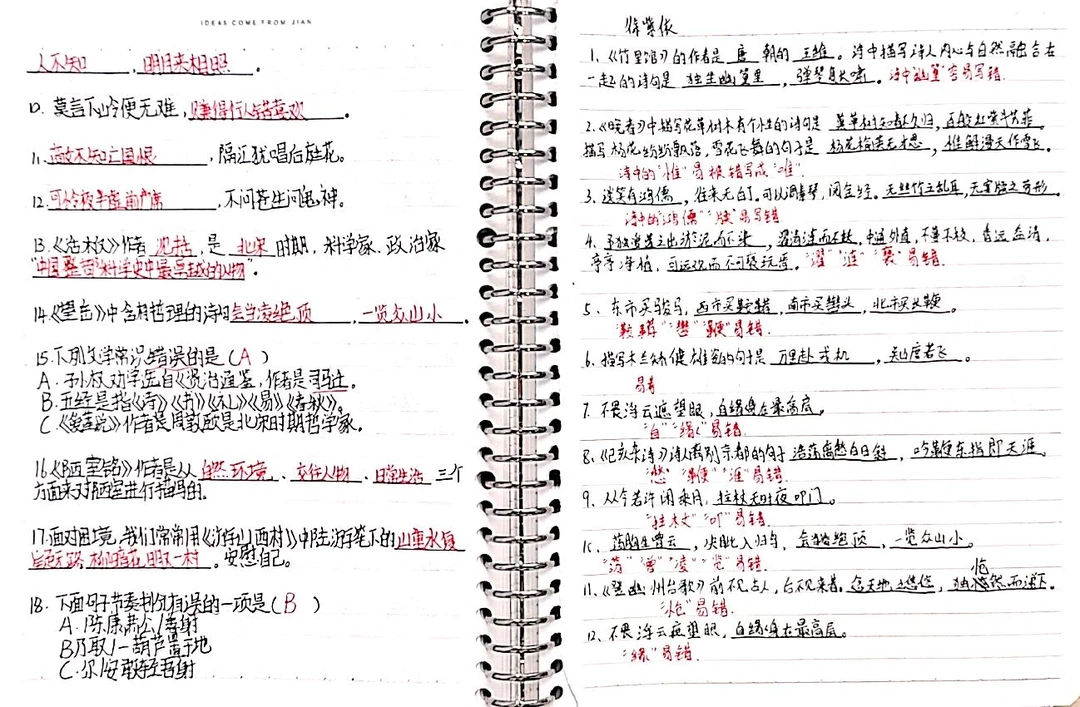 IDEAS COME FROM JIAN
人不知，明月来相照。
10. 莫言下岭便无难，赚得行人错喜欢。
11. 商女不知亡国恨，隔江犹唱后庭花。
12. 可怜夜半虚前席，不问苍生问鬼神。
13.《活板》作者 沈括，是 北宋 时期，科学家、政治家
"中国整部科学史中最卓越的人物"。
14.《望岳》中含有哲理的诗句会当凌绝顶，一览众山小。
15.下列文学常识错误的是（A）
A. 孙权劝学选自《资治通鉴，作者是司马迁。
B. 五经是指《诗》《书》《礼》《易》《春秋》。
C.《爱莲说》作者是周敦颐是北宋时期哲学家。
16.《陋室铭》作者是从 自然环境、交往人物、日常生活 三个
方面来对陋室进行描写的.
17.面对困境，我们常常用《游山西村》中陆游笔下的山重水复
疑无路，柳暗花明又一村。安慰自己。
18. 下面句子节奏划分有误的一项是（B）
A. 陈康肃公/善射
B 乃取/一葫芦置于地
C. 尔/安敢轻吾射
1、《竹里馆》的作者是 唐 朝的 王维。诗中描写诗人内心与自然融合在
一起的诗句是 独坐幽篁里，弹琴复长啸。诗中"幽篁"容易写错.
2.《晚春》中描写花草树木有个性的诗句是 草树知春不久归，百般红紫斗芳菲。
描写杨花纷纷飘落，雪花飞舞的句子是 杨花榆荚无才思，惟解漫天作雪飞。
诗中的"惟"易被错写成"唯".
3、谈笑有鸿儒，往来无白丁。可以调素琴，阅金经。无丝竹之乱耳，无案牍之劳形。
诗中的"鸿儒""牍"易写错
4、予独爱莲之出淤泥而不染，濯清涟而不妖，中通外直，不蔓不枝，香远益清，
亭亭净植，可远观而不可亵玩焉。"濯""涟""亵"易错.
5、东市买骏马，西市买鞍鞯，南市买辔头，北市买长鞭。
"鞍鞯""辔""鞭"易错.
6、描写木兰矫健雄姿的句子是 万里赴戎机，关山度若飞。
易错
7. 不畏浮云遮望眼，自缘身在最高层。
"自""缘"易错.
8、《己亥杂诗》诗人离别京都的句子 浩荡离愁白日斜，吟鞭东指即天涯。
"愁""鞭""涯"易错.
9、从今若许闲乘月，拄杖无时夜叩门。
"拄杖""叩"易错.
10、荡胸生曾云，决眦入归鸟，会当凌绝顶，一览众山小。
"荡""曾""凌""览"易错.
11、《登幽州台歌》前不见古人，后不见来者，念天地之悠悠，独怆然而涕下。
"怆"易错.
12、不畏浮云遮望眼，自缘身在最高层。
"缘"易错.